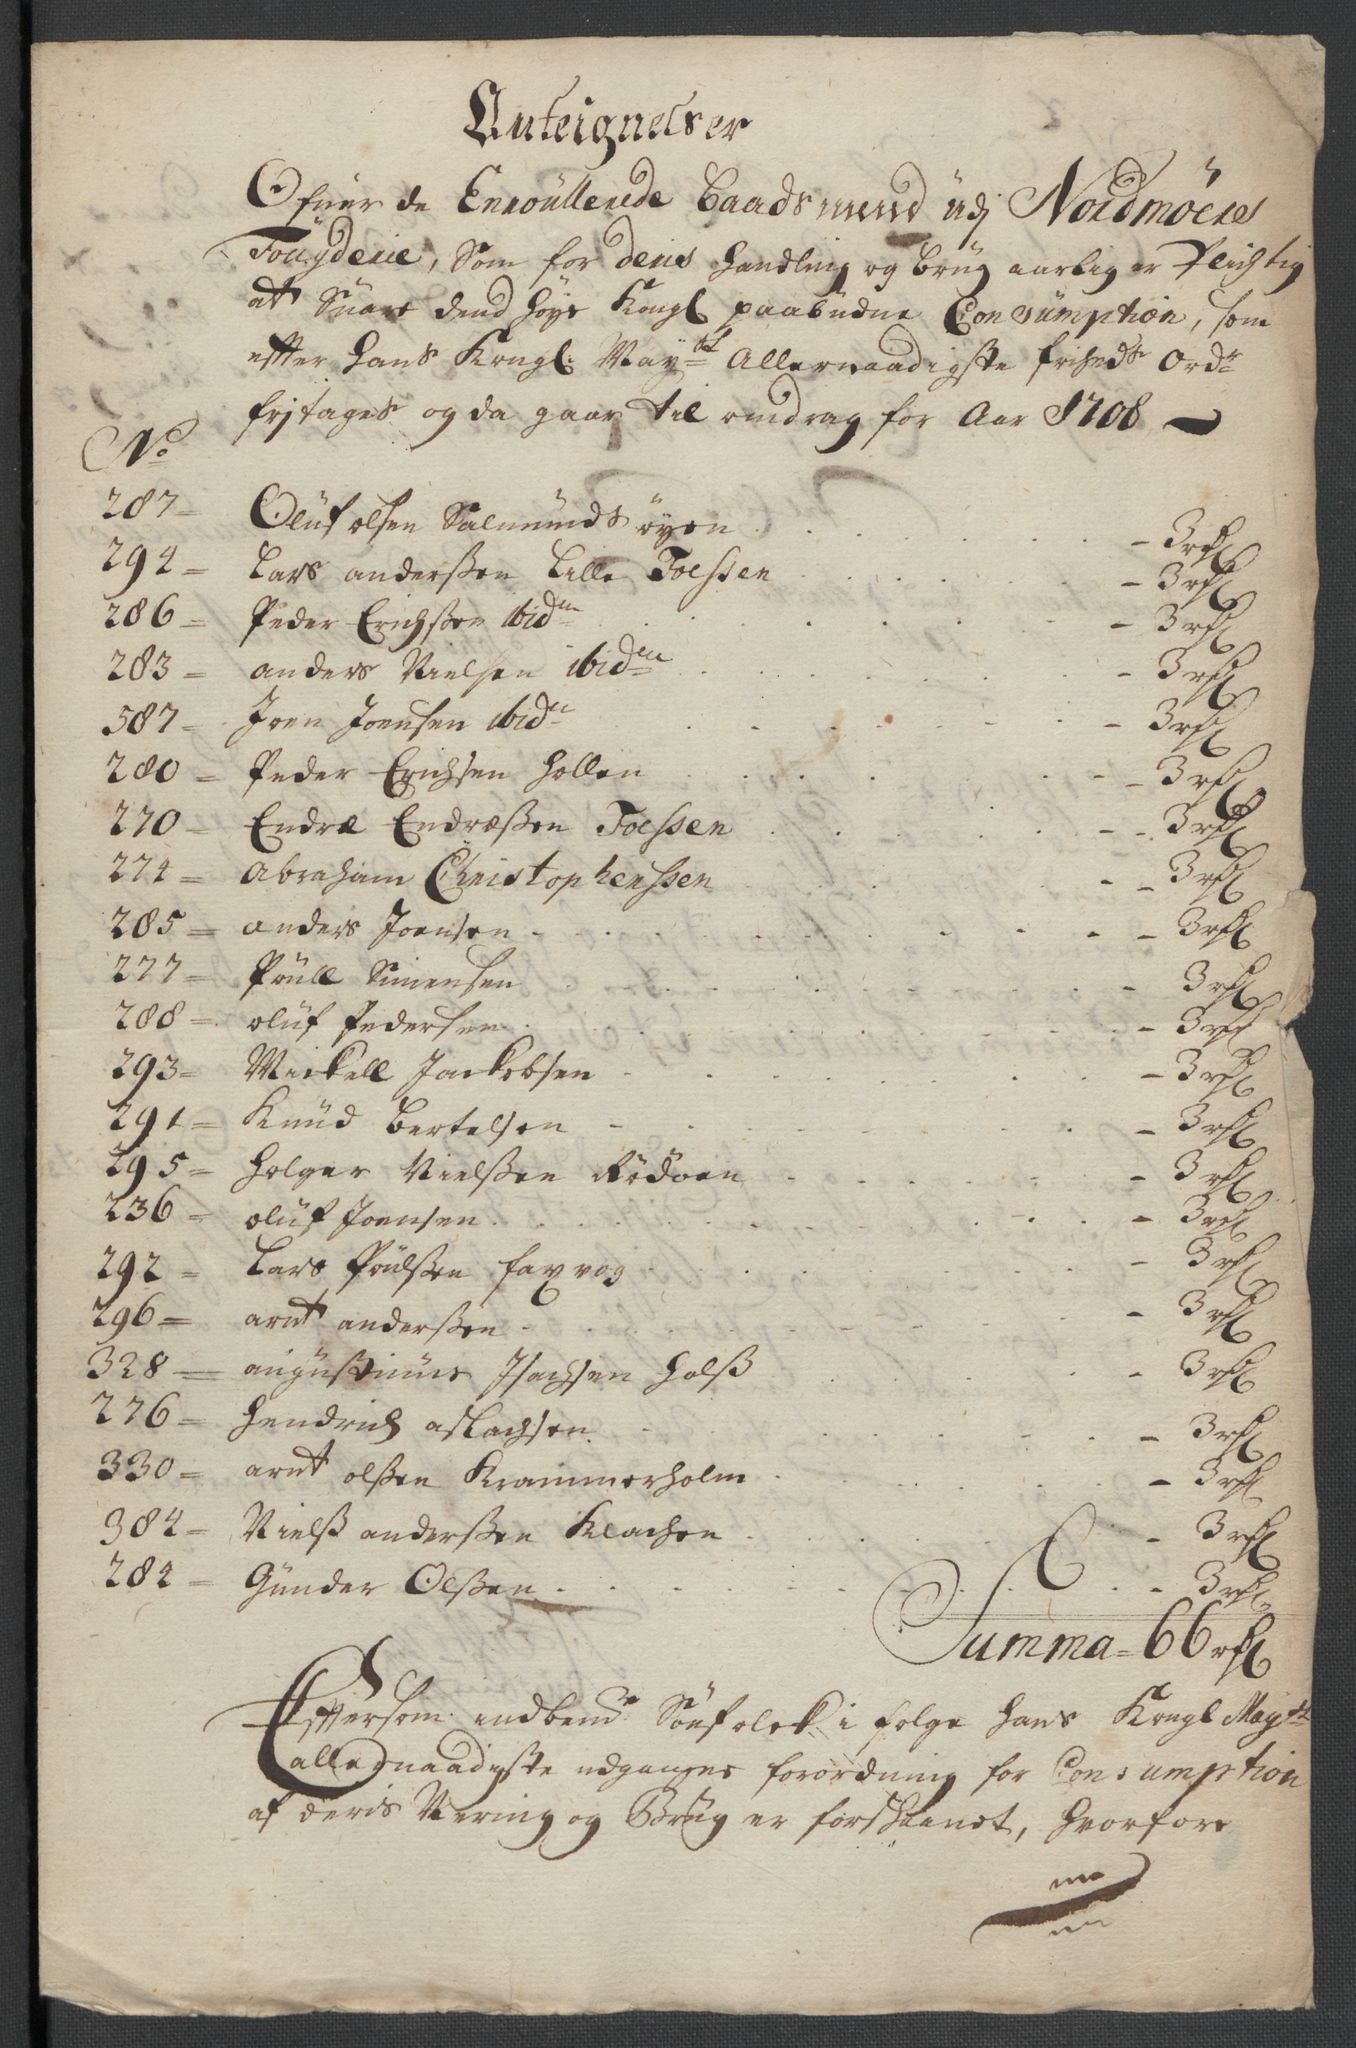 Anteignelser
Ofuer de Enroullerede baadsmend udj Nordmöers
Fougderie, Som for deris handling og brug aarlig er Plichtig
at Suare dend høye Kongl paabudne Consumption, som
effter Hans Kongl: May:tt Allernaadigste friheds Ord:r
frjtages og da gaar til omdrag for Aar 1708
No
287 - Oluf olsen Salmunds öyen - 3 rdl
294 = Lars anderßen Lille Foeßen - 3 rdl
286 = Peder Erichßen ibid:m - 3 rdl
283 = anders Nielsen ibid:m - 3 rdl
587 - Joen Joensen ibid:m - 3 rdl
280 = Peder Erichsen hollen - 3 rdl
270 = Endræ Endræßen Foeßen - 3 rdl
274 = Abraham Christophersen - 3 rdl
285 = anders Joensen - 3 rdl
277 = Poull Simensen 3 rdl
288 = oluf Pedersen - 3 rdl
293 = Mickell Jackobsen - 3 rdl
291 = Knud bertelsen - 3 rdl
295 = holger Nielßen Rödöen - 3 rdl
236 = oluf Joensen - 3 rdl
292 = Lars Poulßen faxvog - 3 rdl
296 = arnt anderßen - 3 rdl
328 = augustinus Isachsen holß - 3 rdl
276 = hendrich aslachsen - 3 rdl
330 = arnt olßen Krammerholm - 3 rdl
384 = Nielß anderßen Klachen - 3 rdl
284 = Gunder Olßen - 3 rdl
Summa = 66 rdl
Effersom indbem:te Söefolck i folge hans Kongl May:tt
allernaadigste udgangne forordning for Consumption
af deris Nering og Brug er forskaanet, hvorfore